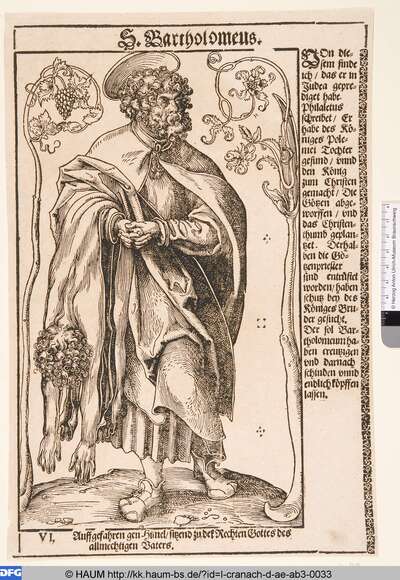 S. Bartholomeus.
VOn die-
sem finde
ich / das er in
Judea gepre-
diget habe.
Philaletus
schreibet / Er
habe des Kö-
niges Pole-
mei Tochter
gesund / vnnd
den König
zum Christen
gemacht / Die
Götzen abge-
worffen / vnd
das Christen-
thumb gepflan-
tzet. Derhal-
ben die Gö-
tzenpriester
sind entrüstet
worden / haben
schutz bey des
Königes Bru
der gesucht.
Der sol Bar-
tholomeum ha-
ben creutzigen
vnd darnach
schinden vnnd
endlich köpffen
lassen.
VI.
Auffgefahren gen Himel / sitzend zu der Rechten Gottes des
allmechtigen Vaters.
DFG
© HAUM http://kk.haum-bs.de/?id=l-cranach-d-ae-ab3-0033